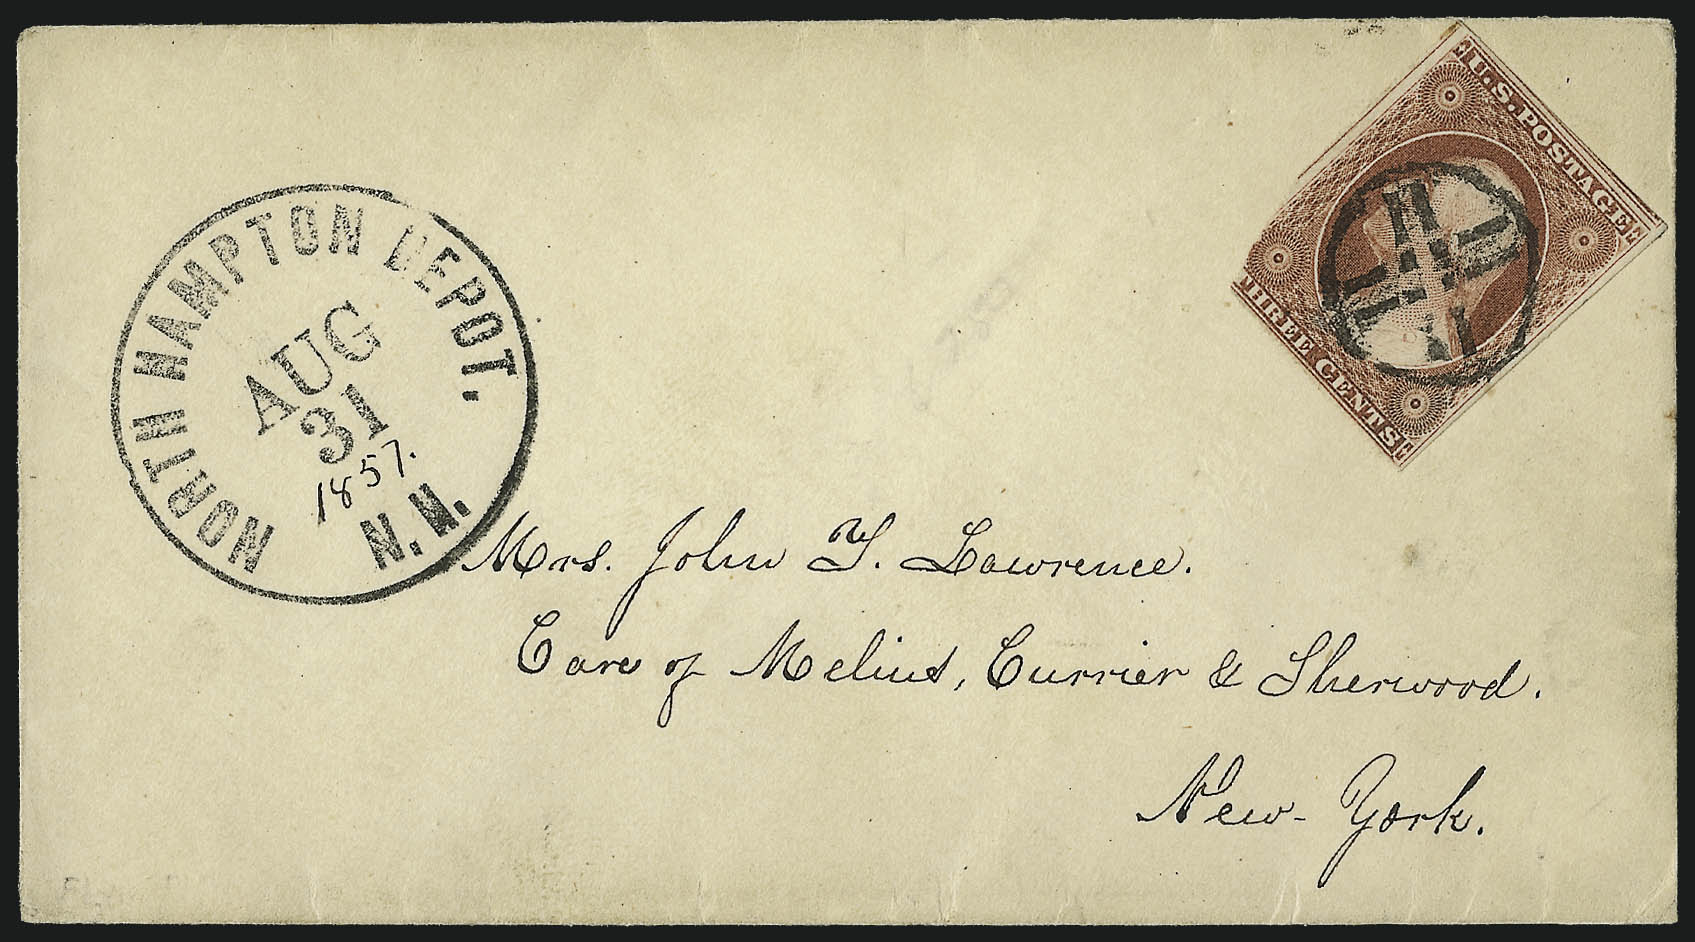 NORTH HAMPTON DEPOT.
AUG
31
1857.
N.H.
U.S. POSTAGE
THREE CENTS
Mrs. John T. Lawrence.
Care of Melius, Currier & Sherwood.
New-York.